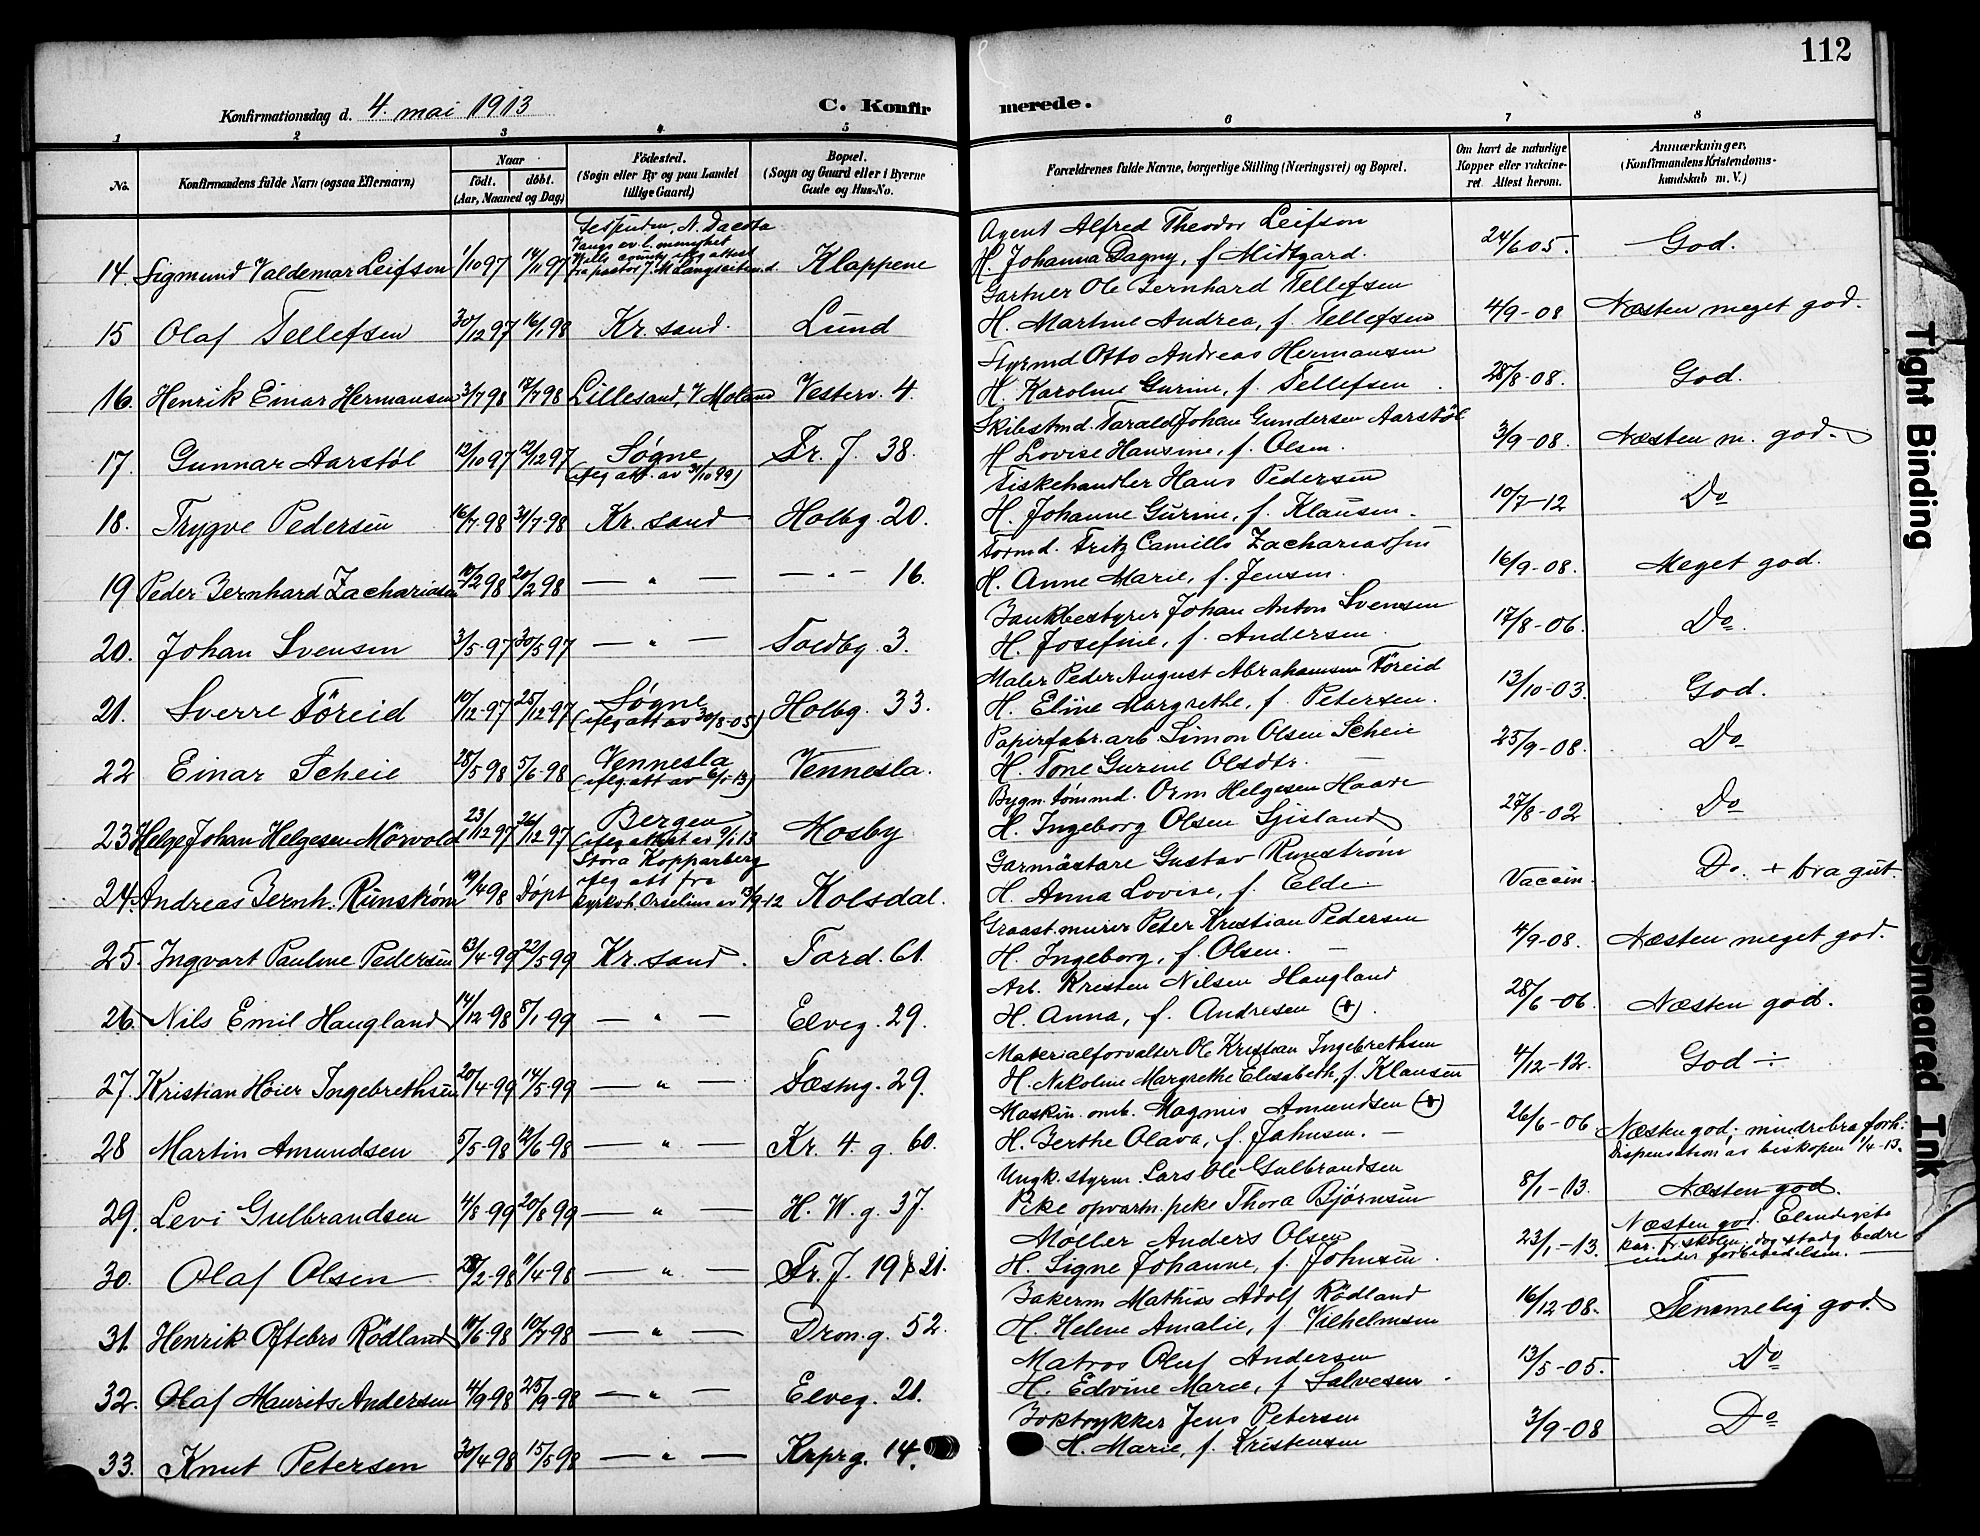 112
Konfirmationsdag d. 4. mai 1913
C. Konfirmerede.
1 2 3 4 5 6 7 8
No.
Konfirmandens fulde Navn (ogsaa Efternavn)
Naar
født. døbt.
(Aar, Maaned og Dag)
Fødested.
(Sogn eller By og paa Landet
tillige Gaard)
Bopæl.
(Sogn og Gaard eller i Byerne
Gade og Hus-No.
Forældrenes fulde Navne, borgerlige Stilling (Næringsvei) og Bopæl.
Om havt de naturlige
Kopper eller vakcineret. Attest herom.
Anmærkninger.
(Konfirmandens Kristendomskundskab m. V.)
14. Sigmund Valdemar Leifson 1/10 97 14/11 97 N. Dacota Klappene
Agent Alfred Theodor Leifson
H. Johanna Dagny, f. Midtgard. 24/6 05. God.
15 Olaf Tellefsen 30/12 97 16/1 98 Kr. sand. Lund
Gartner Ole Bernhard Tellefsen
H. Martine Andrea, f. Tellefsen 4/9-08 Næsten meget god.
16. Henrik Einar Hermansen 3/7 98 17/7 98 Lillesand, V. Moland Vesterv. 4.
Styrmd Otto Andreas Hermansen
H. Karoline Gurine, f. Tellefsen 28/8-08. God.
17. Gunnar Aarstøl 12/10 97 12/12 97 Søgne Fr. J. 38.
(ifleg att. av 31/10 99)
Skibstmd. Tarald Johan Gundersen Aarstøl
H. Lovise Hansine, f. Olsen. 3/9-08. Næsten m. god.
18. Trygve Pedersen 16/7-98 31/7-98 Kr. sand Holbg. 20.
Fiskehandler Hans Pedersen
H. Johanne Gurine, f. Klausen. 10/7-12 Do
19 Peder Bernhard Zachariasen 10/2 98 20/2 98 — " — — " — 16.
Formd. Fritz Camillo Zachariassen
H. Anne Marie, f. Jensen. 16/9-08. Meget god.
20. Johan Svensen 3/5-97 30/5 97 — " — Toldbg. 3.
Bankbestyrer Johan Anton Svensen
H. Josefine, f. Andersen. 17/8-06. Do.
21. Sverre Föreid 10/12-97 25/12-97 Søgne Holbg. 33.
(ifleg att av 30/8-05)
Maler Peder August Abrahamsen Föreid
H. Eline Margrethe, f. Petersen. 13/10-03. God.
22 Einar Scheie 28/5 98 5/6-98 Vennesla Vennesla.
(ifleg. att av 6/1-13)
Papirfabr. arb. Simon Olsen Scheie
H. Tone Gurine Olsdtr. 25/9-08. Do
23 Helge Johan Helgesen Mörvold 23/12 97 26/12 97 Bergen Mosby
(ifleg attest av 9/1 13
Bygn. tømmd. Orm Helgesen Haave
H. Ingeborg Olsen 27/8-02 Do
24. Andreas Bernh. Runstrøm 19/4 98 Døpt Stora Kopparberg Kolsdal.
ifleg att fra
13/9-12
Garmästare Gustav Runström
H. Anna Lovise, f. Elde Vaccin. Do. + bra gut.
25. Ingvart Pauline Pedersen 13/4-99 22/5 99 Kr. sand. Tord. 61.
Graast. murer Peter Kristian Pedersen
H. Ingeborg, f. Olsen. — 4/9-08. Næsten meget god.
26. Nils Emil Haugland 14/12-98 8/1-99 — " — Elveg. 29.
Arb. Kristen Nilsen Haugland
H. Anna, f. Andresen (+). 28/6-06. Næsten god.
27. Kristian Höier Ingebrethsen 20/4-99 14/5-99 — " — Fæstng. 29.
Materialforvalter Ole Kristian Ingebrethsen
H. Nikoline Margrethe Elisabeth, f. Klausen 4/12-12. God ÷
28 Martin Amundsen 5/5-98 12/6-98 — " — Kr. 4. g. 60.
Maskin. omb. Magnus Amundsen (+)
H. Berthe Olava, f. Jahnsen. — 26/6-06 Næsten god; mindre bra forh.
Dispensation av biskopen 1/4-13.
29. Levi Gulbrandsen 4/8-99 20/8 99 — " — H. W. g. 37.
Ungk. styrm. Lars Ole Gulbrandsen
Pike opvartn. peke Thora Bjørnsen 8/1-13. Næsten god.
30. Olaf Olsen 28/2-98 11/4-98 — " — Fr. J. 19 & 21.
Møller Anders Olsen
H. Signe Johanne, f. Johnsen. 23/1-13. Næsten god. Elendigste
kar. fr. skolen; dog stadig bedre
under forberedelsen. —
31. Henrik Oftebro Rödland 10/6-98 10/7 98 — " — Dron. g. 52.
Bakerm Mathias Adolf Rödland
H. Helene Amalie, f. Vilhelmsen 16/12-08. Temmelig god.
32. Olaf Maurits Andersen 4/9-98 25/9-98 — " — Elveg. 21.
Matros Oluf Andersen
H. Edvine Marie, f. Salvesen. 13/5-05. Do
33. Knut Petersen 30/4 98 15/5 98 — " — Krprg. 14.
Boktrykker Jens Petersen
H. Marie, f. Kristensen 3/9-08 Do
Tight Binding
Smeared Ink